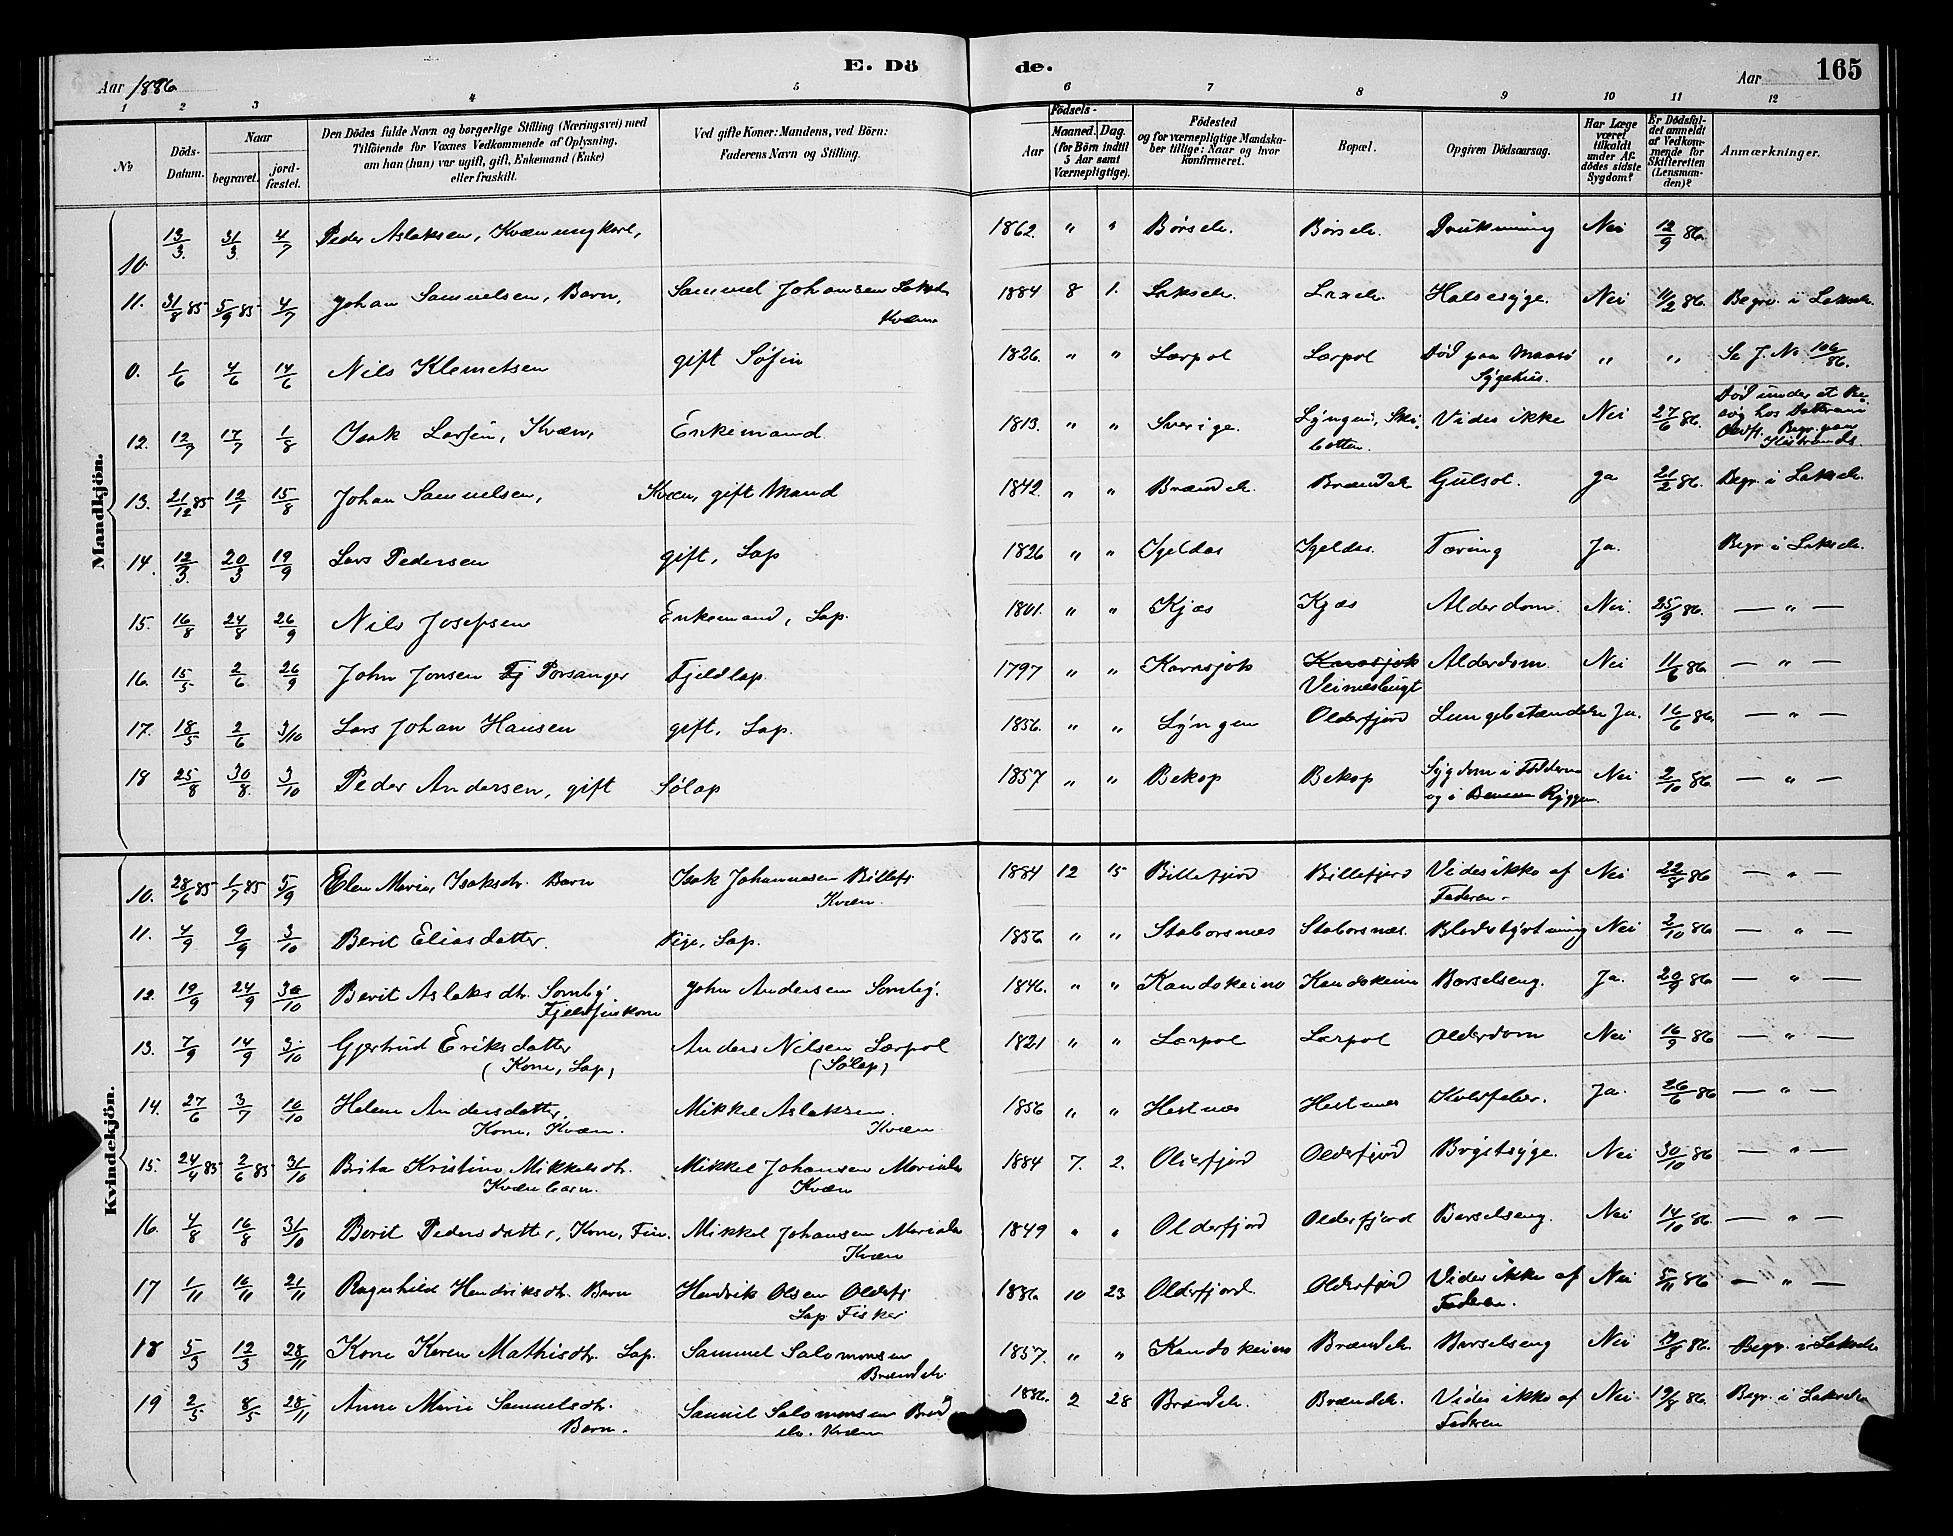 E. Dö de.
165
Aar 1886
Aar
1 2 3 4 5 6 7 8 9 10 11 12
№
Döds-Datum.
Naar
begravet.
jord-fæstet.
Den Dödes fulde Navn og borgerlige Stilling (Næringsvei) med
Tilföiende for Voxnes Vedkommende af Oplysning,
om han (hun) var ugift, gift, Enkemand (Enke)
eller fraskilt.
Ved gifte Koner: Mandens, ved Börn:
Faderens Navn og Stilling.
Födsels-
Aar
Maaned. Dag.
(for Börn indtil
5 Aar samt
Værnepligtige).
Födested
og for værnepligtige Mandska-
ber tillige: Naar og hvor
konfirmeret.
Bopæl.
Opgiven Dödsaarsag.
Har Læge
været
tilkaldt
under Af-
dödes sidste
Sygdom?
Er Dödsfal-
det anmeldt
af Vedkom-
mende for
Skifteretten
(Lensman-
den)?
Anmærkninger.
Mandkjön.
10. 13/3 31/3 4/7 Peder Aslaksen, Kvæn ungkarl, 1862. " " Börselv. Börselv. Drukning Nei 12/9 86.
11. 31/8 85 5/9 85 4/7 Johan Samuelsen, Barn, Samuel Johansen Lakselv Kvæn 1884 8 1. Lakselv. Laxelv. Halsesyge. Nei 11/2 86. Begr. i Lakselv.
0. 1/6 4/6 14/6 Nils Klemetsen gift Söfin 1826. " " Lærpol Lærpol Död paa Maasö Sygehus. " " Se J. No 106/86.
12. 12/7 17/7 1/8 Isak Larsen, Kvæn, Enkemand 1813. " " Sverige. Lyngen, Ski-botten. Vides ikke Nei 27/6 86. Död under et Be-
søg hos Datteren i
Begr. paa
13. 21/12 85 12/1 15/8 Johan Samuelsen, Kvæn, gift Mand 1842. " " Brændelv Brændelv Gulsot. Ja 21/2 86. Begr. i Lakselv.
14. 12/3 20/3 19/9 Lars Pedersen gift, Lap 1826 " " Igeldas Igeldas. Tæring Ja. Begr i Lakselv.
15. 16/8 24/8 26/9 Nils Josefsen Enkemand, Lap. 1801. " " Kjæs Kjæs Alderdom. Nei. 25/9 86. — " —
16. 15/5 2/6 26/9 John Jonsen Fj Porsanger Fjeldlap. 1797 " " Karasjok Karasjok Veinesbugt Alderdom. Nei 11/6 86. — " —
17. 18/5 2/6 3/10 Lars Johan Hansen gift, Lap. 1856. " " Lyngen Olderfjord Lungebetændelse Ja. 16/6 86. — " —
18 25/8 30/8. 3/10 Peder Andersen, gift Sölap 1857 " " Bekop Bekop Sygdom i Födderne og i Benene Ryggen. Nei 2/10 86. — " —
Kvindekjön.
10. 28/6 85 1/7 85 5/9 Elen Marie, Isaksdtr. Barn Isak Johannesen Billefj. Kvæn. 1884 12 15 Billefjord Billefjord Vides ikke af Faderen. Nei 22/8 86 — " —
11. 4/9 9/9 3/10 Berit Eliasdatter. Pige, Lap. 1856 " " Staborsnæs Staborsnæs. Blodstyrtning Nei 2/10 86 — " —
12. 19/9 24/9 30/10 Berit Aslaksdtr. Somby. Fjeldfinskone John Andersen Somby. 1846. " " Kautokeino Kautokeino Barselseng. Ja. 20/9 86 — " —
13. 7/9 14/9 3/10 Gjertrud Eriksdatter (Kone, Lap) Anders Nilsen Lærpol (Sölap) 1821 " " Lærpol Lærpol Alderdom Nei 16/9 86 — " —
14. 27/6 3/7 10/10 Helene Andersdatter, Kone, Kvæn. Mikkel Aslaksen. Kvæn 1856 " " Hestnæs Hestnæs Koldfeber. Ja. 26/6 86 — " —
15. 24/4 85 2/6 85 31/10 Brita Kristine Mikkelsdtr. Kvænbarn. Mikkel Johansen Kvæn 1884 7. 2. Olderfjord Olderfjord Brystsyge. Nei 30/10 86 — " —
16. 4/8 16/8 31/10 Berit Pedersdatter, Kone, Fin. Mikkel Johansen Kvæn 1849 " " Olderfjord Olderfjord Barselseng. Nei 14/10 86. — " —
17 1/11 16/11 21/11 Ragnhild Hendriksdtr. Barn Hendrik Olsen Olderfj Lap. Fisker 1886 10 23 Olderfjord. Olderfjord Vides ikke af Faderen. Nei 5/11 86 — " —
18 5/3 12/3 28/11 Kone Karen Mathisdtr. Lap. Samuel Salomonsen Brændelv. 1857. " " Kautokeino Brændelv. Barselseng Nei 19/8 86. Begr. i Lakselv
19 2/5 8/5 28/11 Anne Marie Samuelsdtr. Barn. Samuel Salomonsen Brænd elv. Kvæn 1886. 2 28 Brændelv. Brændelv. Vides ikke af Faderen Nei 19/8 86. Begr. i Lakselv